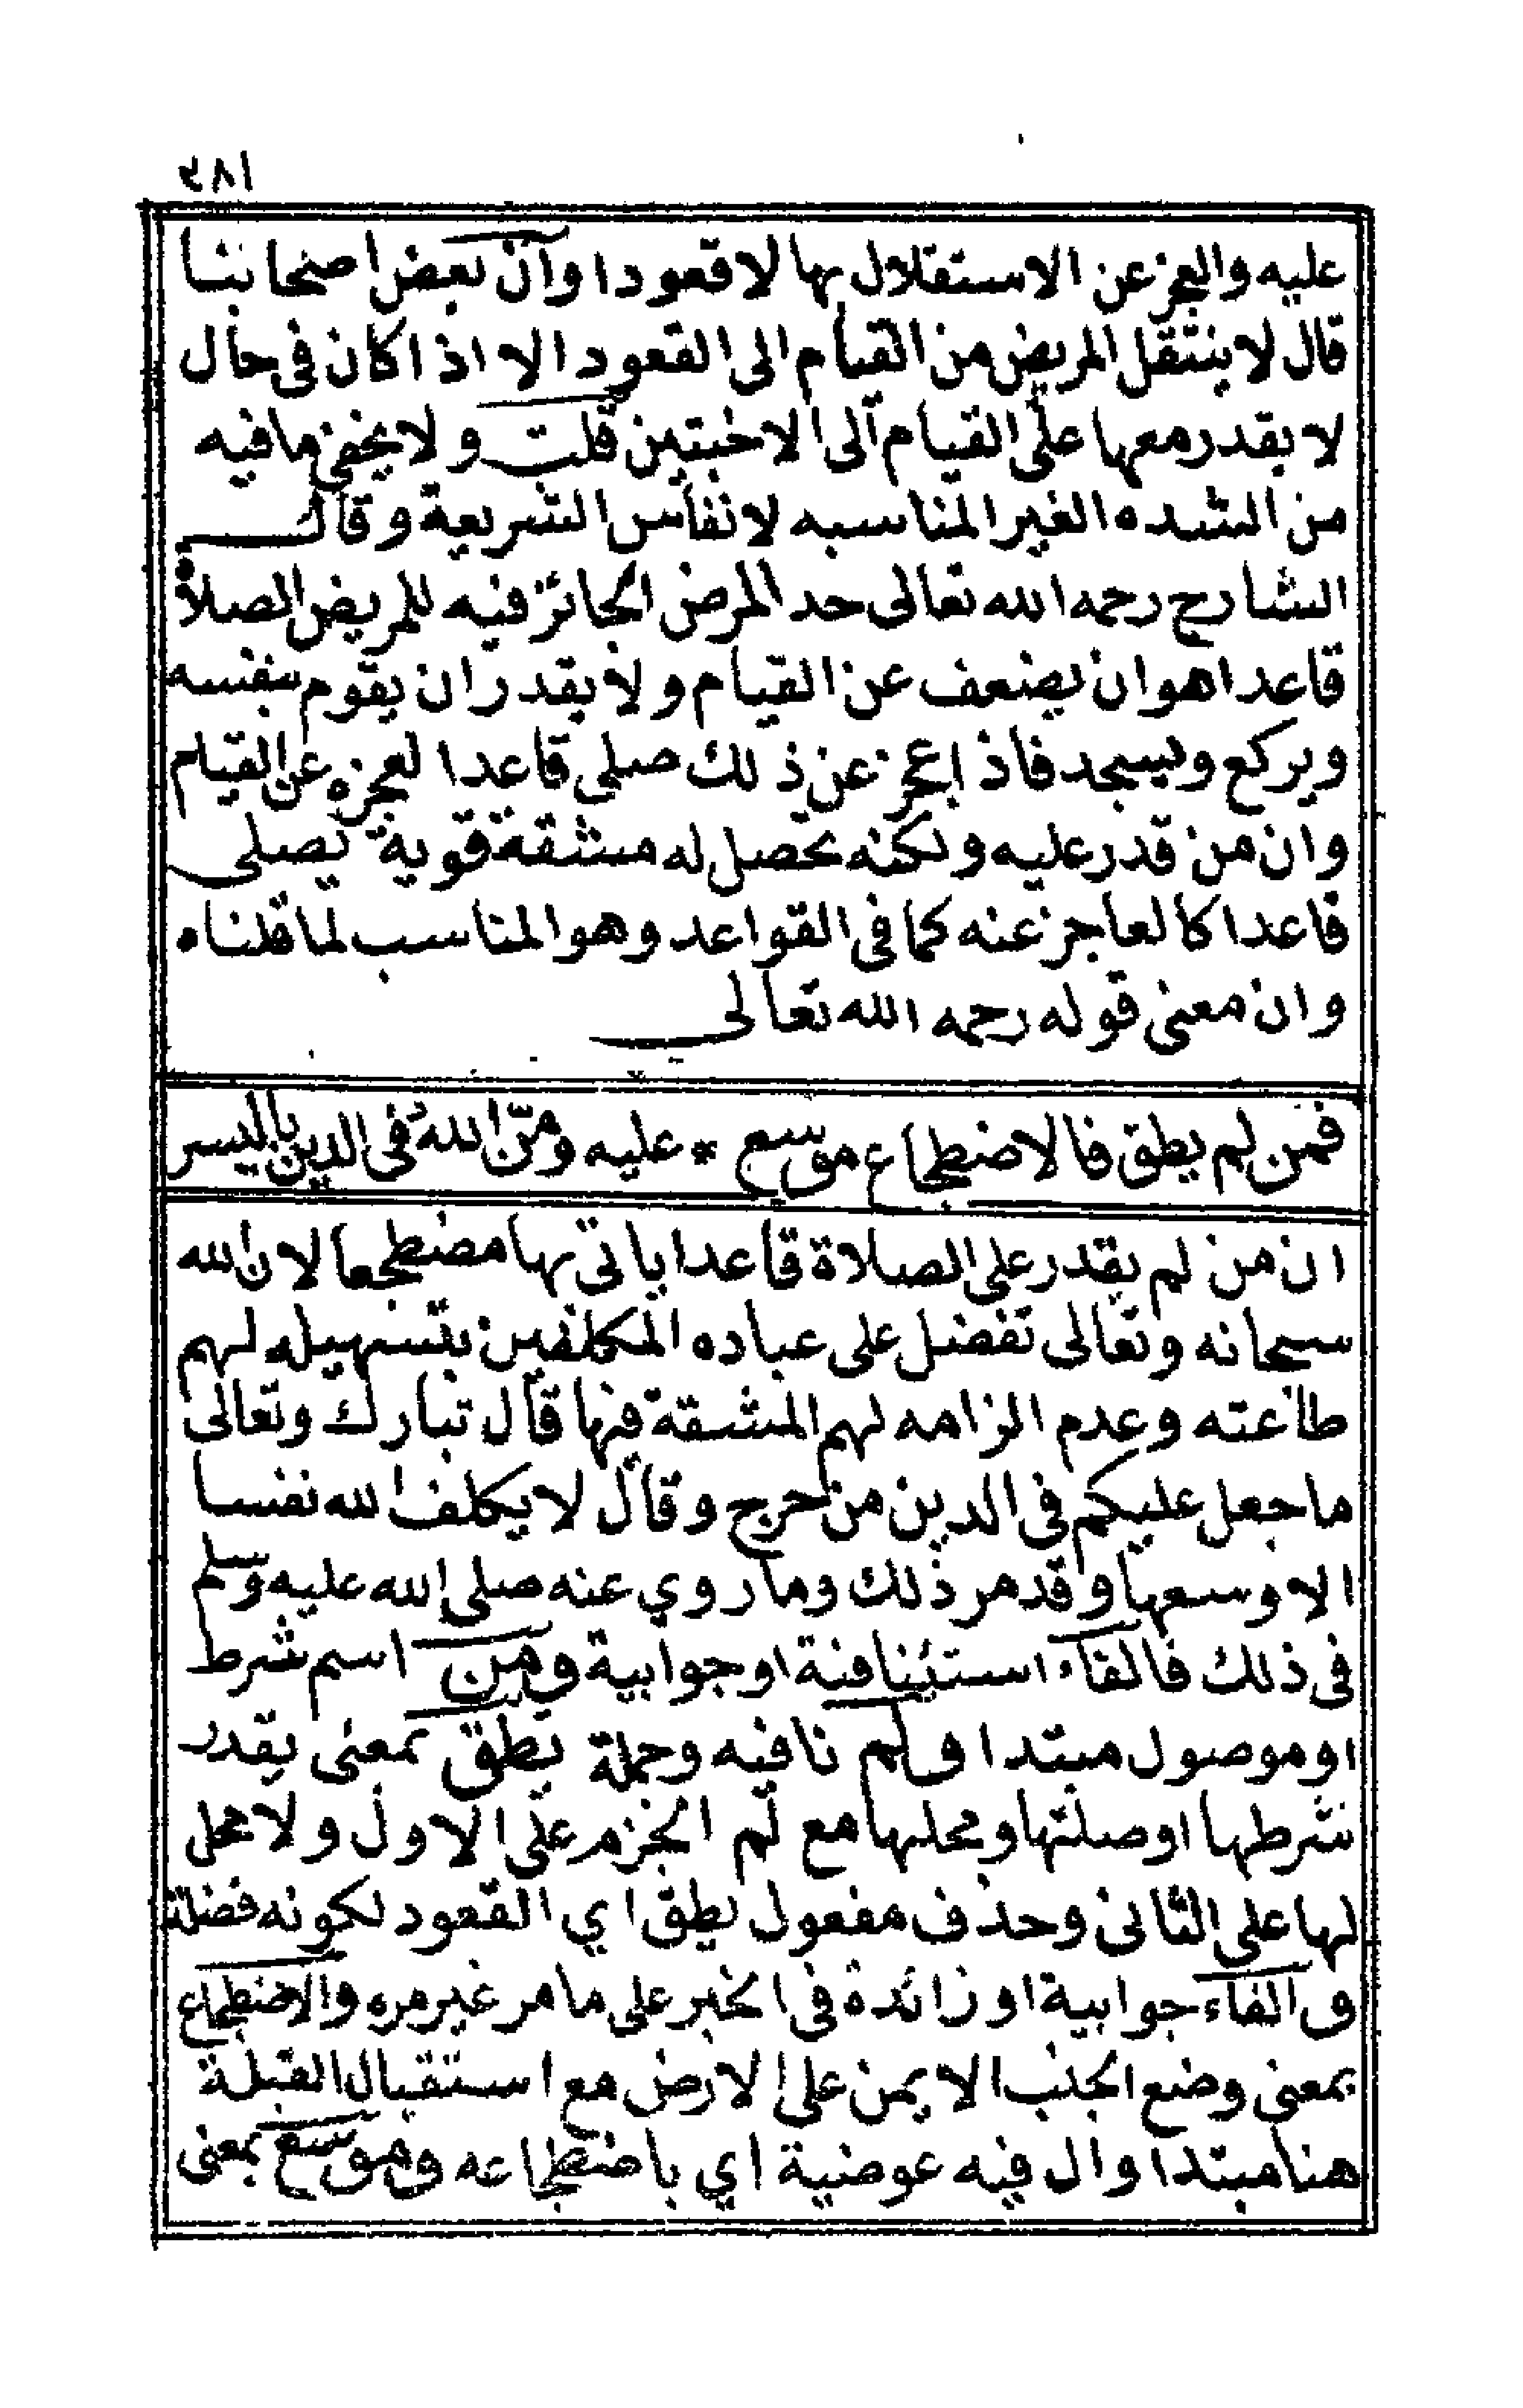 ٢٨١
عليه والعجز عن الاستقلال بها لا قعودا وآن بعض اصحابنا
قال لا ينتقل المريض من القيام الى القعود الا اذا كان فى حال
لا يقدر معها على القيام آلى الاخبثين قلت ولا يخفى ما فيه
من الشده الغير المناسبه لانفاس الشريعة وقال
الشارح رحمه الله تعالى حد المرض الجائز فيه للمريض الصلاة
قاعدا هو ان يضعف عن القيام ولا يقدر ان يقوم بنفسه
ويركع ويسجد فاذا عجز عن ذلك صلى قاعدا لعجزه عن القيام
وان من قدر عليه ولكنه تحصل له مشقة قوية يصلى
قاعدا كالعاجز عنه كما فى القواعد وهو المناسب لما قلناه
وان معنى قوله رحمه الله تعالى
فمن لم يطق فالاضطجاع موسع * عليه ومنّ اللهُ فى الدين باليسر
ان من لم يقدر على الصلاة قاعدا ياتى بها مضطجعا لان الله
سبحانه وتعالى تفضل على عباده المكلفين بتسهيله لهم
طاعته وعدم الزامه لهم المشقة فيها قال تبارك وتعالى
ما جعل عليكم فى الدين من حرج وقال لا يكلف الله نفسا
الا وسعها وقد مر ذلك وما روي عنه صلى الله عليه وسلم
فى ذلك فالفاء استئنافية او جوابية ومن اسم شرط
او موصول مبتدا ولم نافيه وجملة يطق بمعنى يقدر
شرطها او صلتها ومحلها مع لم الجزم على الاول ولا محل
لها على الثانى وحذف مفعول يطق اي القعود لكونه فضلة
والفاء جوابية او زائدة فى الخبر على ما مر غير مره والاضطجاع
بمعنى وضع الجنب الايمن على الارض مع استقبال القبلة
هنا مبتدا وال فيه عوضية اي باضطجاعه وموسع بمعنى